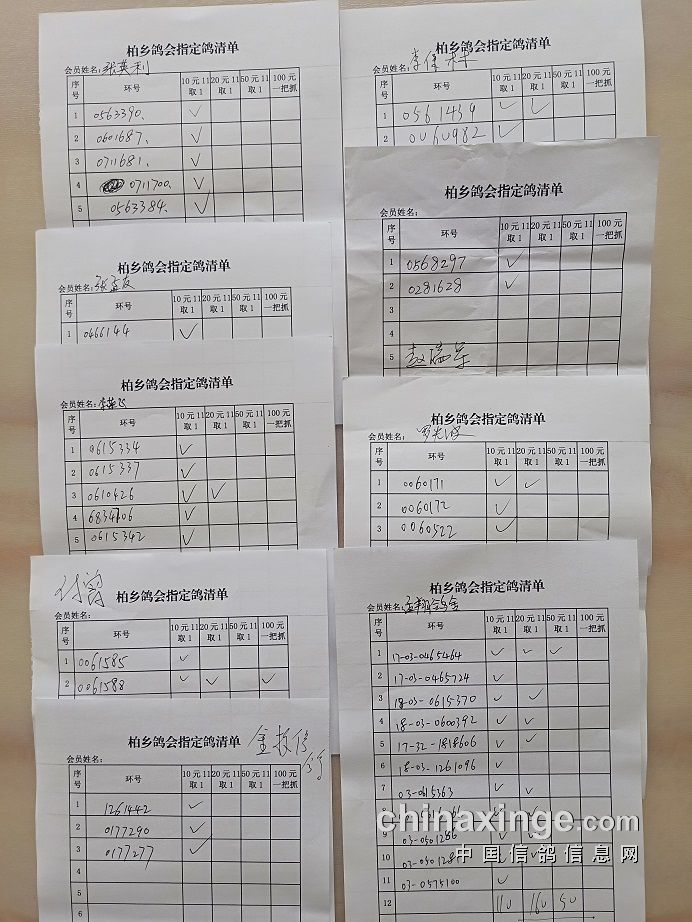 柏乡鸽会指定鸽清单
会员姓名：张英利
序号 环号 10元11取1 20元11取1 50元11取1 100元一把抓
1 0563390. ✓
2 0601687. ✓
3 0711681. ✓
4 0711700. ✓
5 0563384. ✓
柏乡鸽会指定鸽清单
会员姓名：张孟友
序号 环号 10元11取1 20元11取1 50元11取1 100元一把抓
1 0466144 ✓
柏乡鸽会指定鸽清单
会员姓名：
序号 环号 10元11取1 20元11取1 50元11取1 100元一把抓
1 0615334 ✓
2 0615337 ✓
3 0610426 ✓ ✓
4 6834106 ✓
5 0615342 ✓
柏乡鸽会指定鸽清单
会员姓名：
序号 环号 10元11取1 20元11取1 50元11取1 100元一把抓
1 0061585 ✓
2 0061588 ✓ ✓ ✓
柏乡鸽会指定鸽清单
会员姓名：
序号 环号 10元11取1 20元11取1 50元11取1 100元一把抓
1 1261442 ✓
2 0177290 ✓
3 0177277 ✓
4
5
6
柏乡鸽会指定鸽清单
会员姓名：
序号 环号 10元11取1 20元11取1 50元11取1 100元一把抓
1 0561439 ✓ ✓
2 0060982 ✓
柏乡鸽会指定鸽清单
会员姓名：
序号 环号 10元11取1 20元11取1 50元11取1 100元一把抓
1 0568297 ✓
2 0281628 ✓
3
4
5 赵瑞
柏乡鸽会指定鸽清单
会员姓名：
序号 环号 10元11取1 20元11取1 50元11取1 100元一把抓
1 0060171 ✓ ✓
2 0060172 ✓
3 0060522 ✓
柏乡鸽会指定鸽清单
会员姓名：孟翔鸽舍
序号 环号 10元11取1 20元11取1 50元11取1 100元一把抓
1 17-03-0465464 ✓ ✓ ✓
2 17-03-0465724 ✓
3 18-03-0615370 ✓ ✓
4 18-03-0600392 ✓ ✓
5 17-32-1818606 ✓ ✓
6 18-03-1261096 ✓
7 03-0615363 ✓ ✓
8
9 03-0501286 ✓ ✓
10 ✓ ✓
11 03-0575100 ✓ ✓
12 110 110 50
chinaxinge.com
中国信鸽信息网